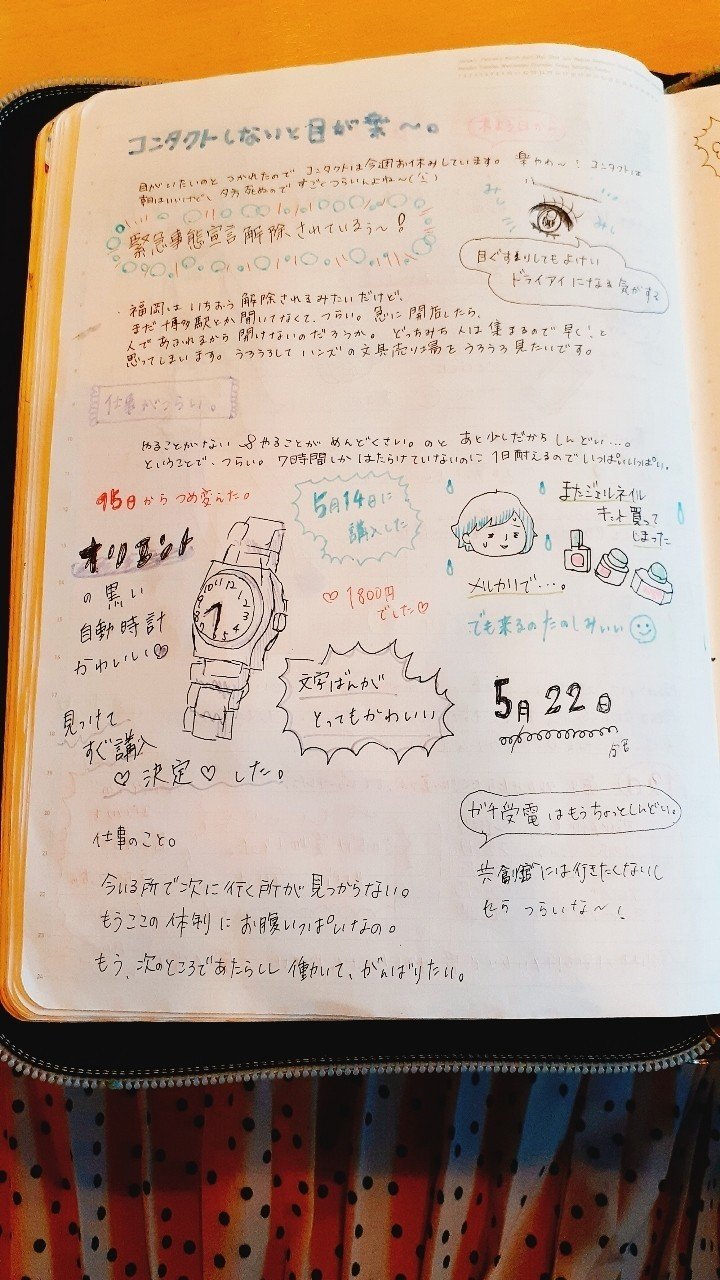 コンタクトしないと目が楽〜。
目がいたいのと つかれたので コンタクトは今週お休みしています。 楽やわ〜! コンタクトは
朝はいいけど、夕方 死ぬので すごくつらいんよね〜
みし
みし
緊急事態宣言解除されているぅ〜!
目ぐすりしてもよけい
ドライアイになる気がする
・福岡は いちおう 解除されるみたいだけど、
まだ 博多駅とか開いてなくて、つらい。急に 開店したら、
人であふれるから 開けないのだろうか。 どっちみち 人は 集まるので 早く!と
思ってしまいます。うろうろして ハンズの文具売り場を うろうろ 見たいです。
仕事がつらい。
やることがない & やることが めんどくさい。のと あと少しだから しんどい…。
ということで、つらい。7時間しか はたらけていないのに 1日耐えるので いっぱいいっぱい。
15日から つめ変えた。
5月14日に
講入した
またジェルネイル
キット買って
しまった
オリエント
の黒い
自動時計
かわいい♡
♡1800円
でした♡
メルカリで…。
でも来るのたのしみいい
12
11
10
9
8
7
6
5
4
3
2
1
文字ばんが
とってもかわいい
5月22日
見つけて
すぐ講入
♡決定♡した。
ガチ受電はもうちょっとしんどい。
仕事のこと。
今いる所で次に行く所が見つからない。
もうここの体制に お腹いっぱいなの。
もう、次のところであたらしく 働いて、がんばりたい。
には行きたくないし
つらいな〜!